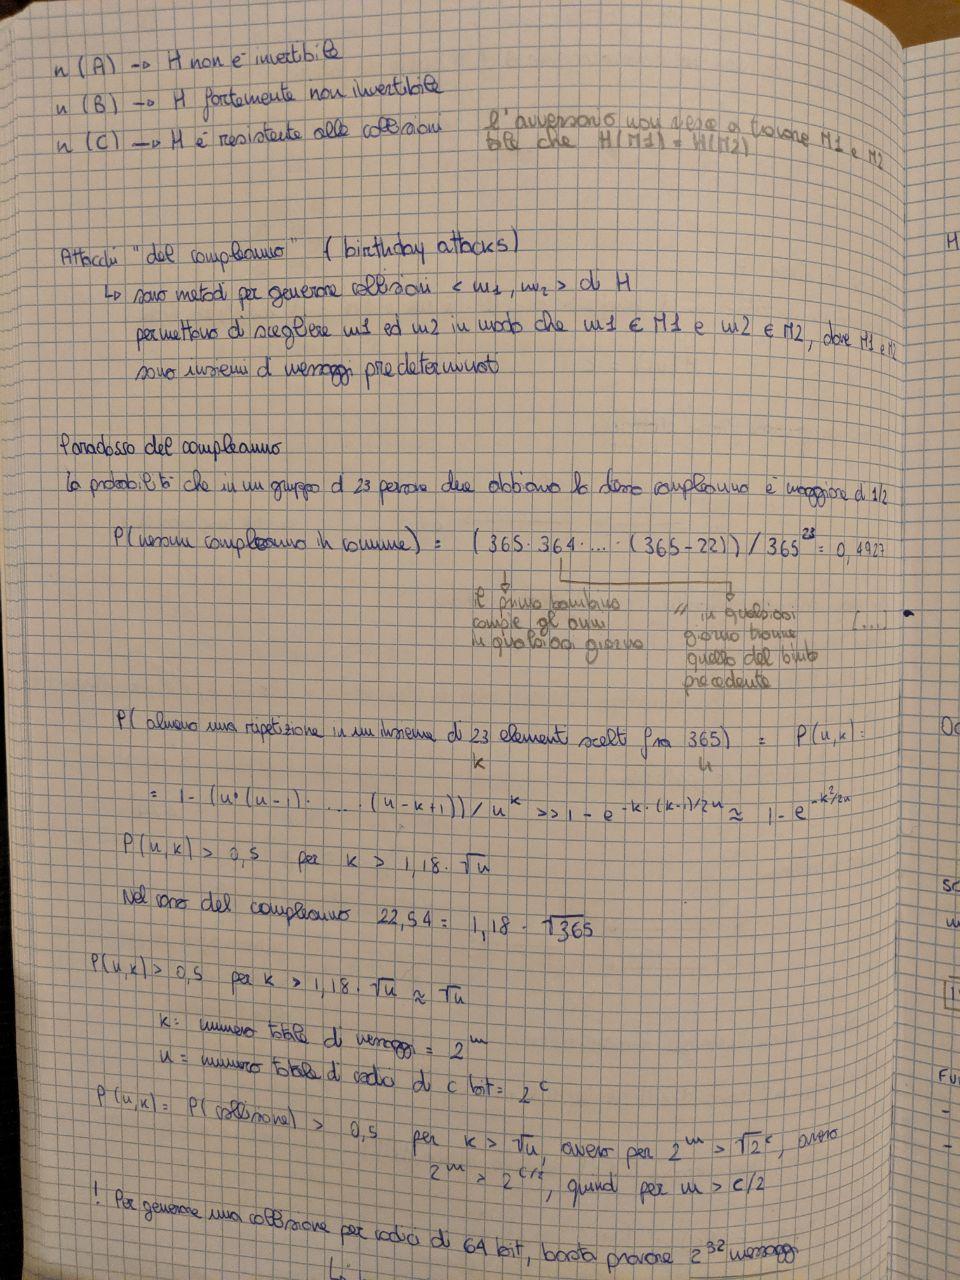 n (A) → H non è invertibile
n (B) → H fortemente non invertibile
n (C) → H è resistente alle collisioni
l'avversario non riesce a trovare M1 e M2
tale che H(M1) = H(M2)
Attacchi "del compleanno" (birthday attacks)
↳ sono metodi per generare collisioni < m1, m2 > di H
permettono di scegliere m1 ed m2 in modo che m1 ∈ M1 e m2 ∈ M2, dove M1 e M2
sono insiemi di messaggi predeterminati
Paradosso del compleanno
La probabilità che in un gruppo di 23 persone due abbiano lo stesso compleanno è maggiore di 1/2
P(nessun compleanno in comune) = (365 · 364 · ... · (365-22)) / 365^23 = 0,4927
il primo bambino
compie gli anni
in qualsiasi giorno
" in qualsiasi
giorno tranne
quello del bimbo
precedente
[...]
P( almeno una ripetizione in un insieme di 23 elementi scelti fra 365) = P(n,k) =
k n
= 1 - (n·(n-1)· .... ·(n-k+1)) / n^k >> 1 - e^-k·(k-1)/2n ≈ 1 - e^-k²/2n
P(n,k) > 0,5 per k > 1,18 · √n
Nel caso del compleanno 22,54 = 1,18 · √365
P(n,k) > 0,5 per k > 1,18 · √n ≈ √n
k = numero totale di messaggi = 2^m
n = numero totale di codici di c bit = 2^c
P(n,k) = P(collisione) > 0,5 per k > √n, ovvero per 2^m > √2^c, ovvero
2^m > 2^c/2, quindi per m > c/2
! Per generare una collisione per codici di 64 bit, basta provare 2^32 messaggi